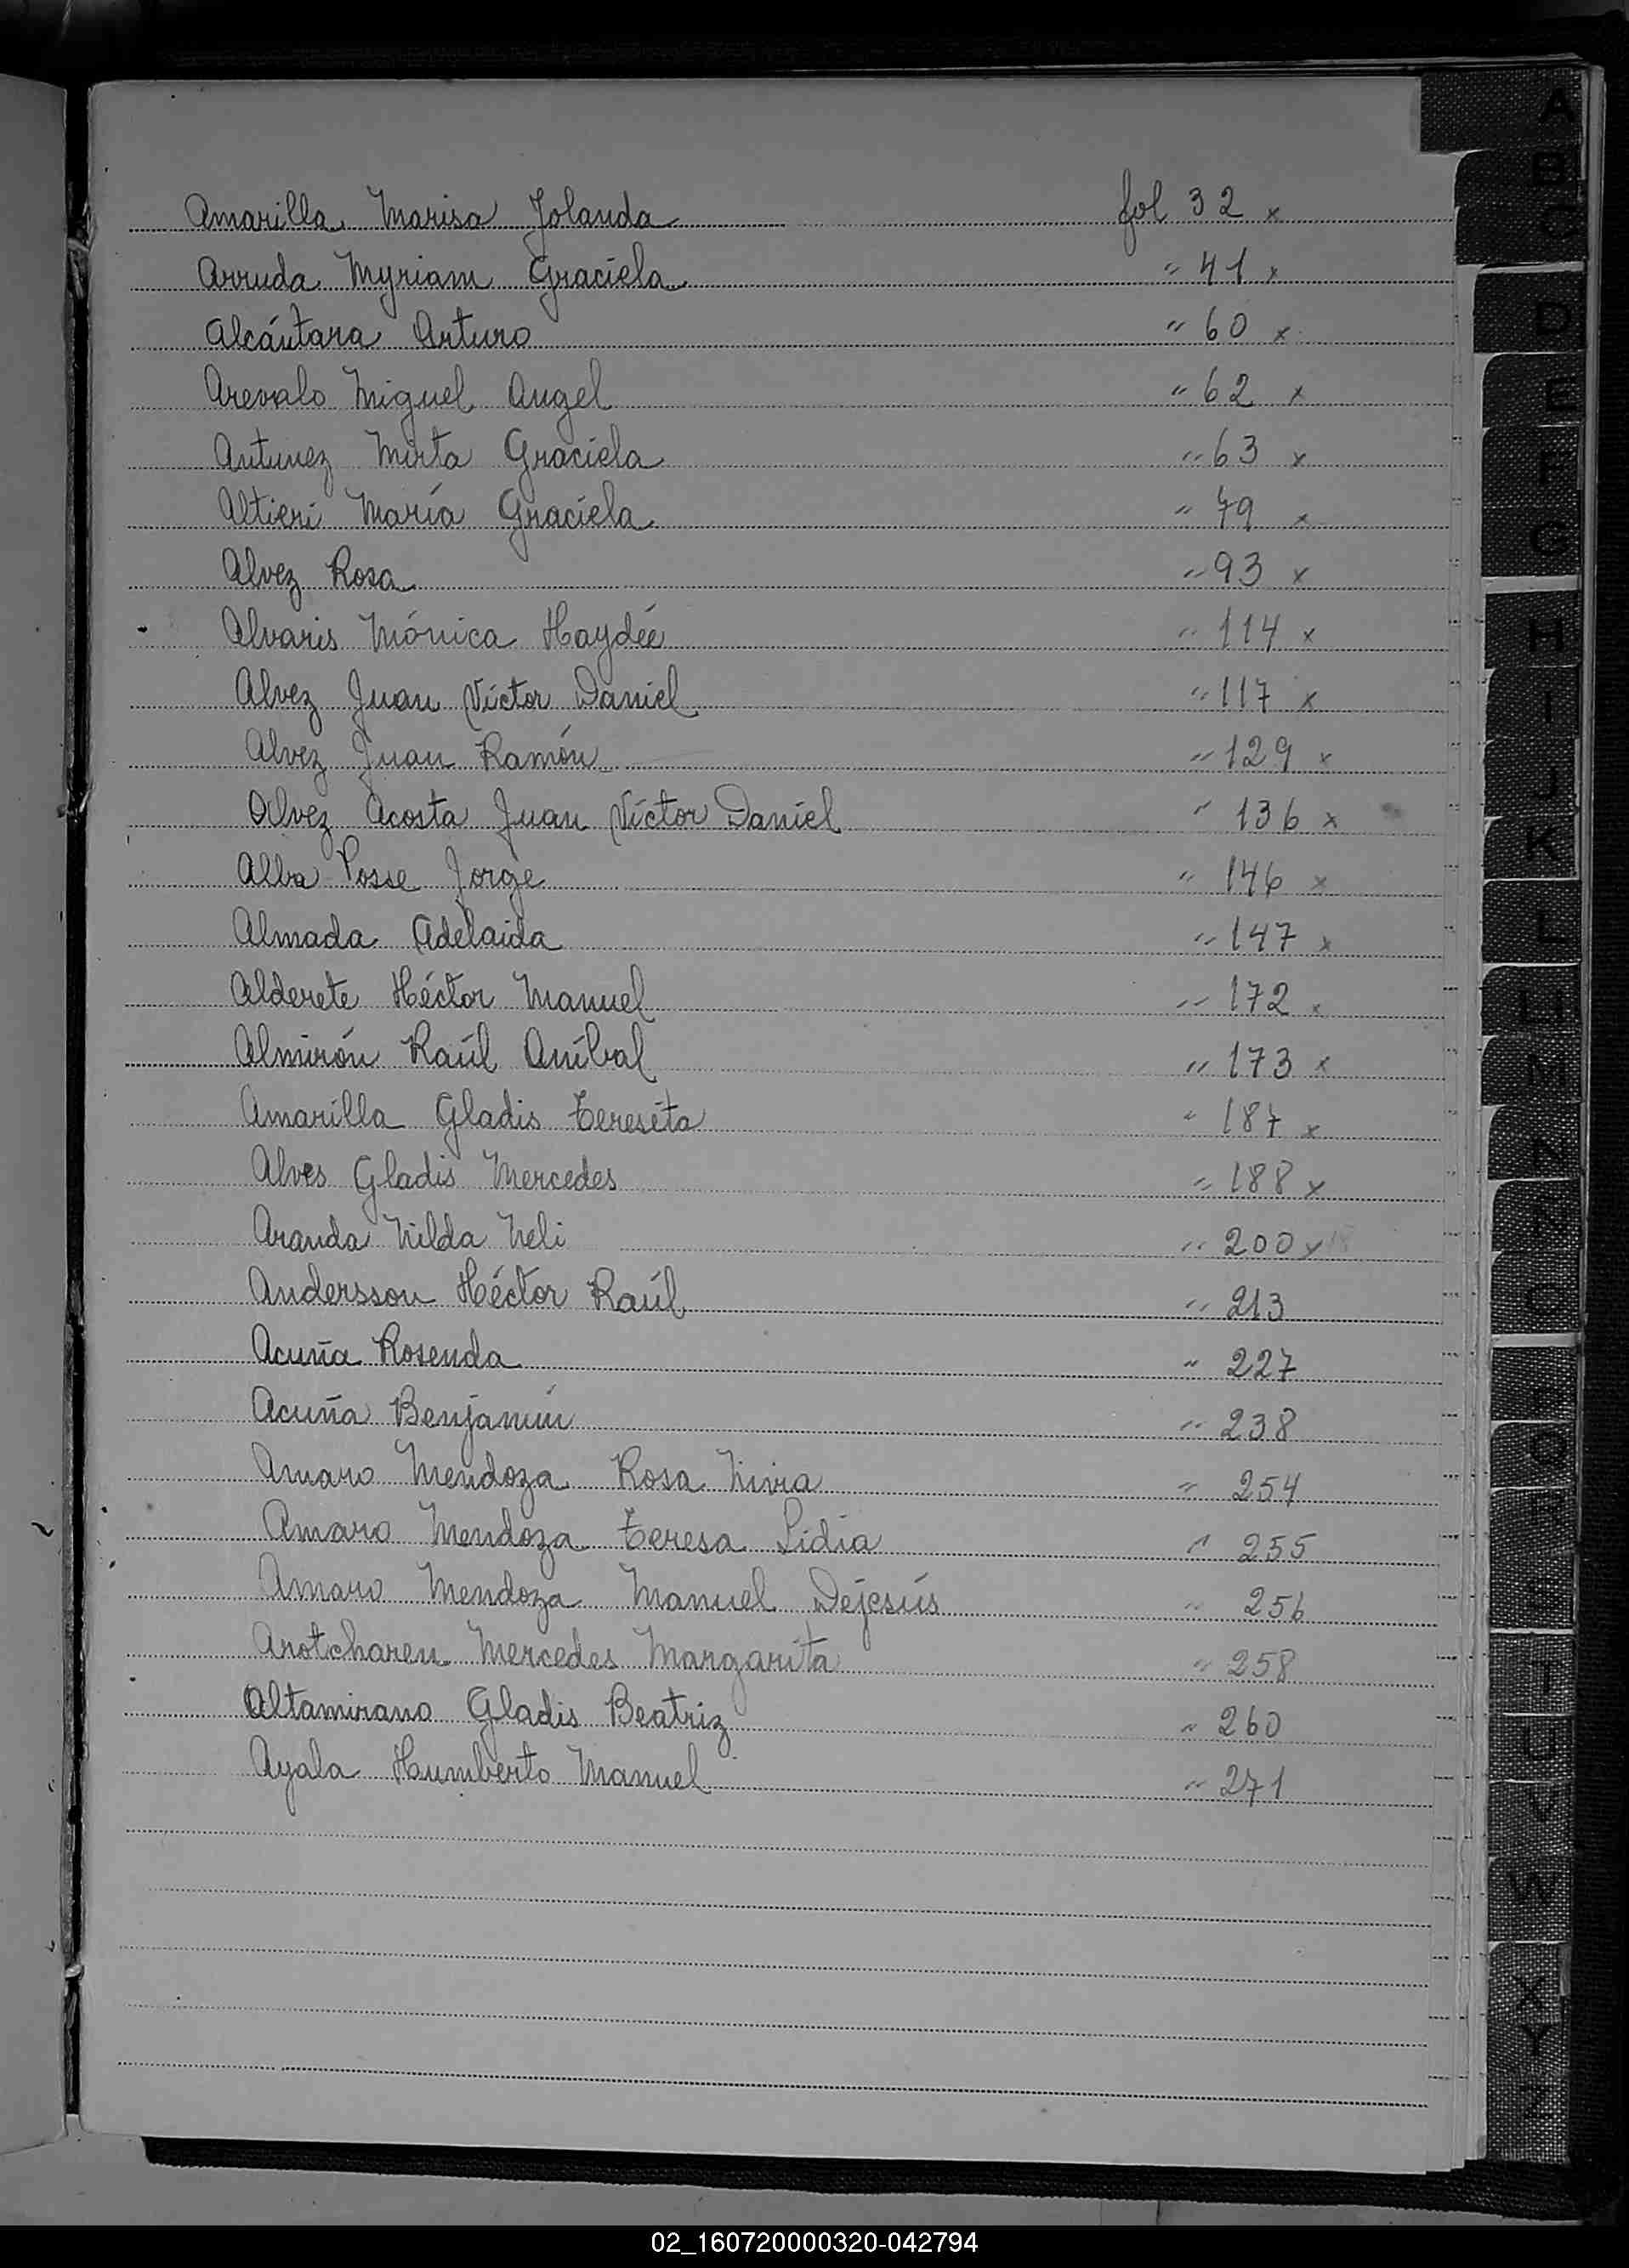 Amarilla Marisa Jolanda fol 32 x
Arruda Myriam Graciela " 41 x
Alcántara Arturo " 60 x
Arevalo Miguel Angel " 62 x
Antunez Mirta Graciela " 63 x
Altieri María Graciela " 79 x
Alvez Rosa " 93 x
Alvaris Mónica Haydée " 114 x
Alvez Juan Víctor Daniel " 117 x
Alvez Juan Ramón " 129 x
Alvez Acosta Juan Víctor Daniel " 136 x
Alba Posse Jorge " 146 x
Almada Adelaida " 147 x
Alderete Héctor Manuel " 172 x
Almirón Raúl Aníbal " 173 x
Amarilla Gladis Teresita " 187 x
Alves Gladis Mercedes " 188 x
Aranda Nilda Neli " 200 x
Andersson Héctor Raúl " 213
Acuña Rosenda " 227
Acuña Benjamín " 238
Amaro Mendoza Rosa Nivia " 254
Amaro Mendoza Teresa Lidia " 255
Amaro Mendoza Manuel Dejesús " 256
Arotcharen Mercedes Margarita " 258
Altamirano Gladis Beatriz " 260
Ayala Humberto Manuel " 271
A
B
C
D
E
F
G
H
I
J
K
L
LL
M
N
Ñ
O
P
Q
R
S
T
U
V
W
X
Y
Z
02_160720000320-042794